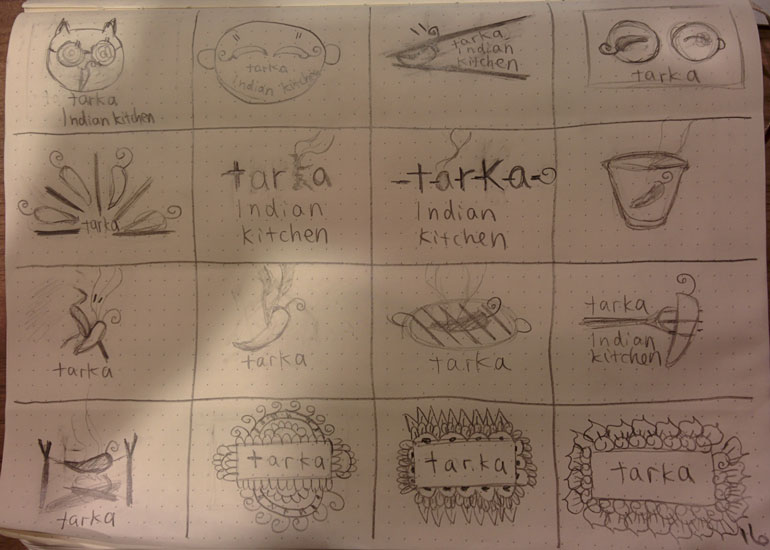 tarka
Indian kitchen
tarka
Indian kitchen
tarka
Indian
kitchen
tarka
tarka
tarka
Indian
kitchen
tarka
Indian
kitchen
tarka
tarka
tarka
tarka
Indian
kitchen
tarka
tarka
tarka
tarka
16